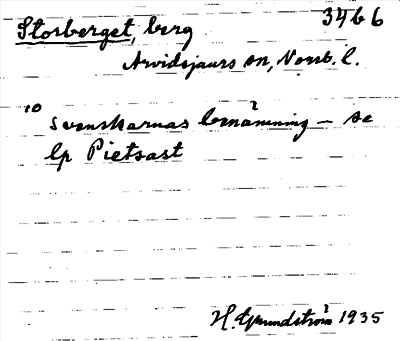 3466
Storberget, berg
Arvidsjaurs sn, Norrb. l.
10
svenskarnas benämning – se
lp Pietsast
H. Grundström 1935